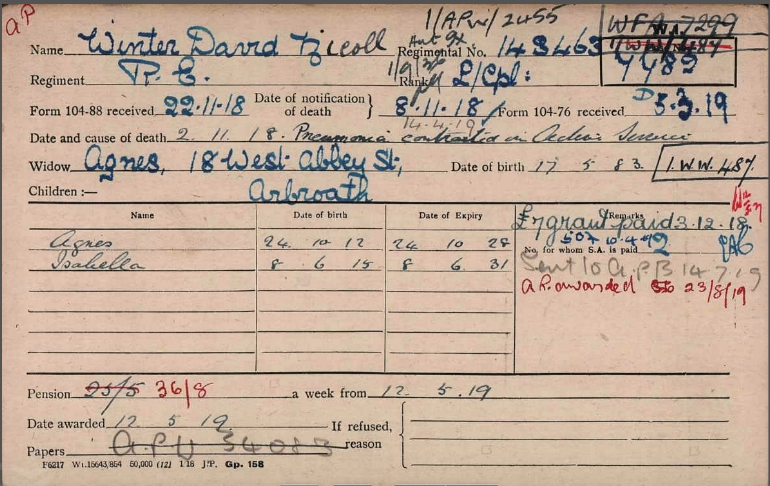 AP
1/APW/2455
WFA 7299
Name Winter David Nicoll Regimental No. 148463
7489
Regiment R. E. Rank L/Cpl:
Form 104-88 received 22.11.18 Date of notification of death } 8.11.18 Form 104-76 received D 5.3.19
14.4.19
Date and cause of death 2. 11. 18. Pneumonia contracted in Active Service
Widow Agnes, 18 West Abbey St, Date of birth 17 5 83. 1.W.W. 487.
Children :— Arbroath
Name Date of birth Date of Expiry Remarks
£7 grant paid 3.12.18
Agnes 24. 10 12 24 10 28
No. for whom S.A. is paid 2
Isabella 8 6 15 8 6 31
Sent to A.P.B 14.7.19
A P. awarded 23/8/19
Pension 25/5 36/8 a week from 12. 5.19
Date awarded 12 5 19. If refused, reason
Papers A.P.W 34083
F6217 Wt.15643,854 50,000 (12) 1 18 J.P. Gp. 158